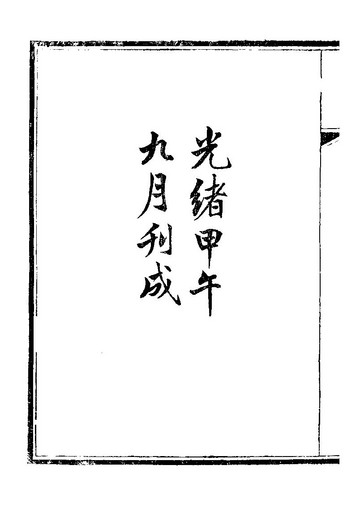 光緒甲午
九月刋成